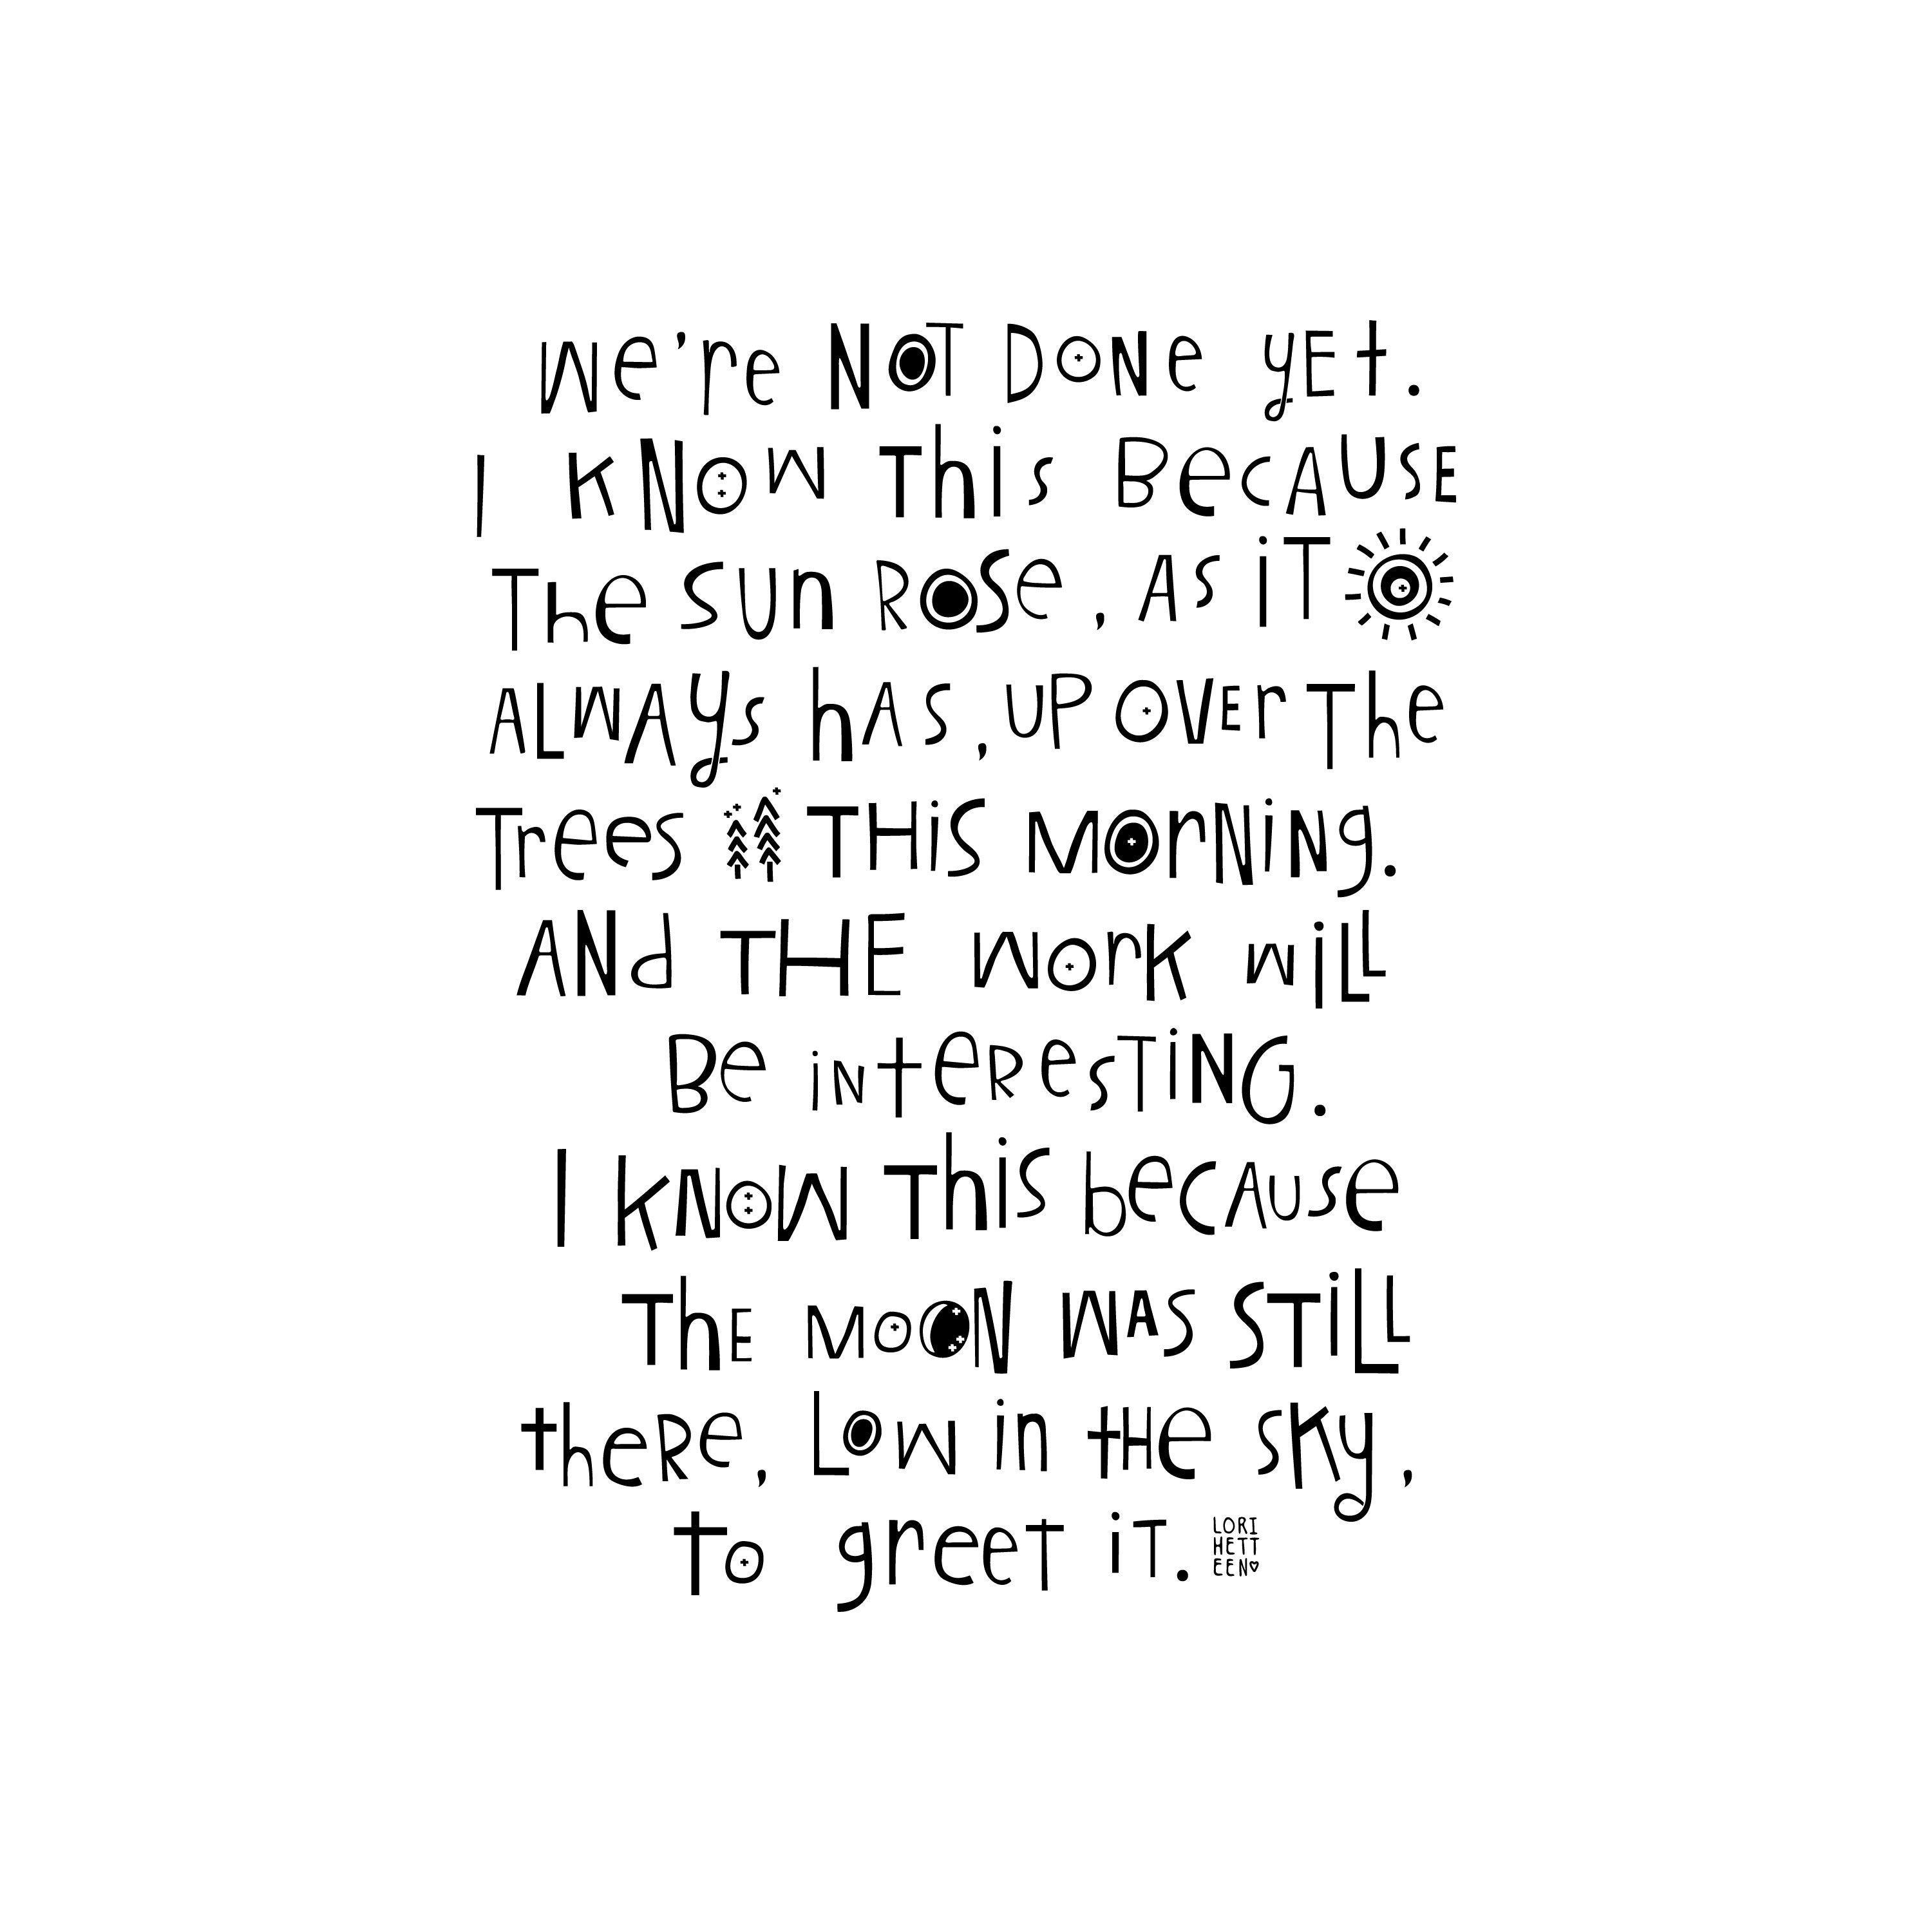 We're NOT DONe yEt.
I KNOW This BecAUSE
The SUn ROSe, As iT
ALWAys hAs, UP OVEr The
Trees THiS MOrNiNg.
ANd THE WOrK WiLL
Be inTeResTiNG.
I KNOW ThiS becAuse
ThE MOON WAS STiLL
theRe, LOW in tHe SKy,
to greeT iT.
LORI
HETT
EEN♥